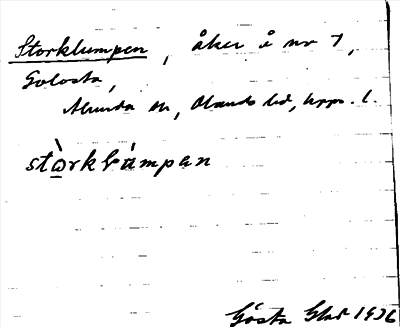 Storklumpen, åker å nr 7,
Golosta,
Almunda sn, Olands hd, Upps. l.
stòrkl̀umpen
Gösta 1936